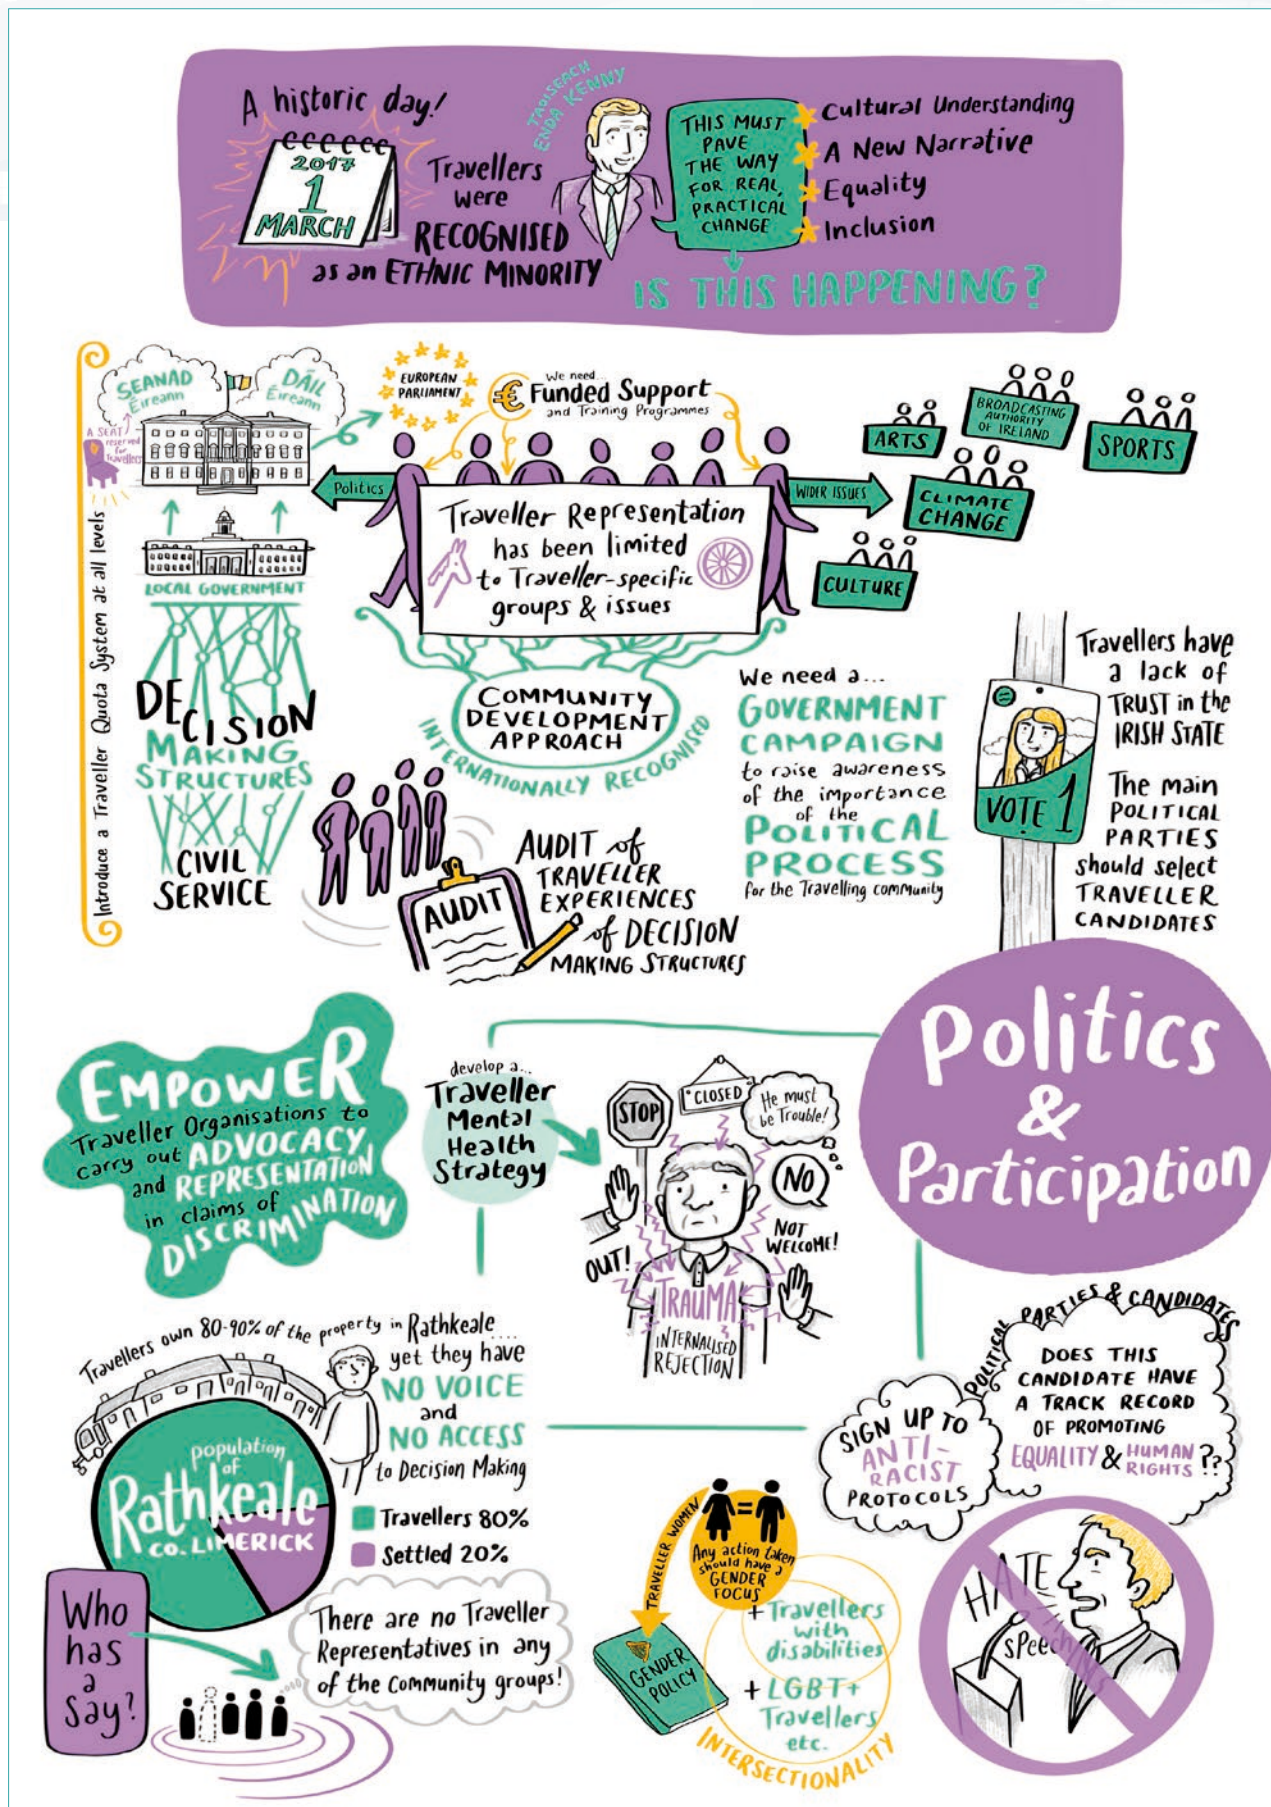 A historic day!
2017
1
MARCH
Travellers
were
RECOGNISED
as an ETHNIC MINORITY
TAOISEACH
ENDA KENNY
THIS MUST
PAVE
THE WAY
FOR REAL,
PRACTICAL
CHANGE
Cultural Understanding
A New Narrative
Equality
Inclusion
IS THIS HAPPENING?
Introduce a Traveller Quota System at all levels
SEANAD
Éireann
DÁIL
Éireann
A SEAT
reserved
for
Travellers
LOCAL GOVERNMENT
DECISION
MAKING
STRUCTURES
CIVIL
SERVICE
EUROPEAN
PARLIAMENT
€
We need...
Funded Support
and Training Programmes
Politics
WIDER ISSUES
Traveller Representation
has been limited
to Traveller-specific
groups & issues
ARTS
BROADCASTING
AUTHORITY
OF IRELAND
SPORTS
CLIMATE
CHANGE
CULTURE
COMMUNITY
DEVELOPMENT
APPROACH
INTERNATIONALLY RECOGNISED
AUDIT
AUDIT of
TRAVELLER
EXPERIENCES
of DECISION
MAKING STRUCTURES
We need a...
GOVERNMENT
CAMPAIGN
to raise awareness
of the importance
of the
POLITICAL
PROCESS
for the Travelling community
VOTE 1
Travellers have
a lack of
TRUST in the
IRISH STATE
The main
POLITICAL
PARTIES
should select
TRAVELLER
CANDIDATES
Politics
&
Participation
EMPOWER
Traveller Organisations to
carry out ADVOCACY
and REPRESENTATION
in claims of
DISCRIMINATION
develop a...
Traveller
Mental
Health
Strategy
STOP
CLOSED
He must
be Trouble!
NO
NOT
WELCOME!
OUT!
TRAUMA
INTERNALISED
REJECTION
Travellers own 80-90% of the property in Rathkeale....
yet they have
NO VOICE
and
NO ACCESS
to Decision Making
population
of
Rathkeale
CO. LIMERICK
Travellers 80%
Settled 20%
Who
has
a
Say?
There are no Traveller
Representatives in any
of the Community groups!
TRAVELLER WOMEN
=
Any action taken
should have a
GENDER
FOCUS
GENDER
POLICY
+ Travellers
with
disabilities
+ LGBT+
Travellers
etc.
INTERSECTIONALITY
POLITICAL PARTIES & CANDIDATES
DOES THIS
CANDIDATE HAVE
A TRACK RECORD
OF PROMOTING
EQUALITY & HUMAN
RIGHTS ??
SIGN UP TO
ANTI-
RACIST
PROTOCOLS
HATE
SPEECH